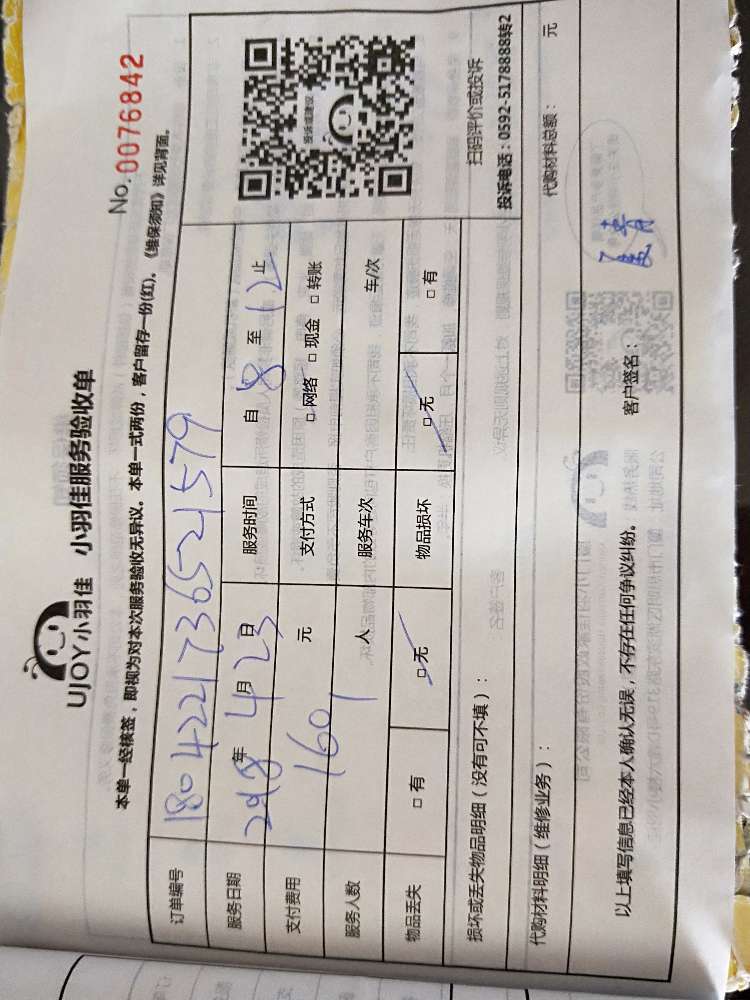 No. 0076842
UJOY小羽佳 小羽佳服务验收单
本单一经核签，即视为对本次服务验收无异议。本单一式两份，客户留存一份(红)。《维保须知》详见背面。
订单编号 180422173652 1579
服务日期 2018年4月23日 服务时间 自8至12止
支付费用 160元 支付方式 □网络 □现金 □转账
服务人数 1人 服务车次 车/次
物品丢失 □有 □无 物品损坏 □无 □有
损坏或丢失物品明细（没有可不填）：
扫码评价或投诉
投诉电话：0592-5178888转2
代购材料明细（维修业务）： 代购材料总额： 元
以上填写信息已经本人确认无误，不存在任何争议纠纷。 客户签名：